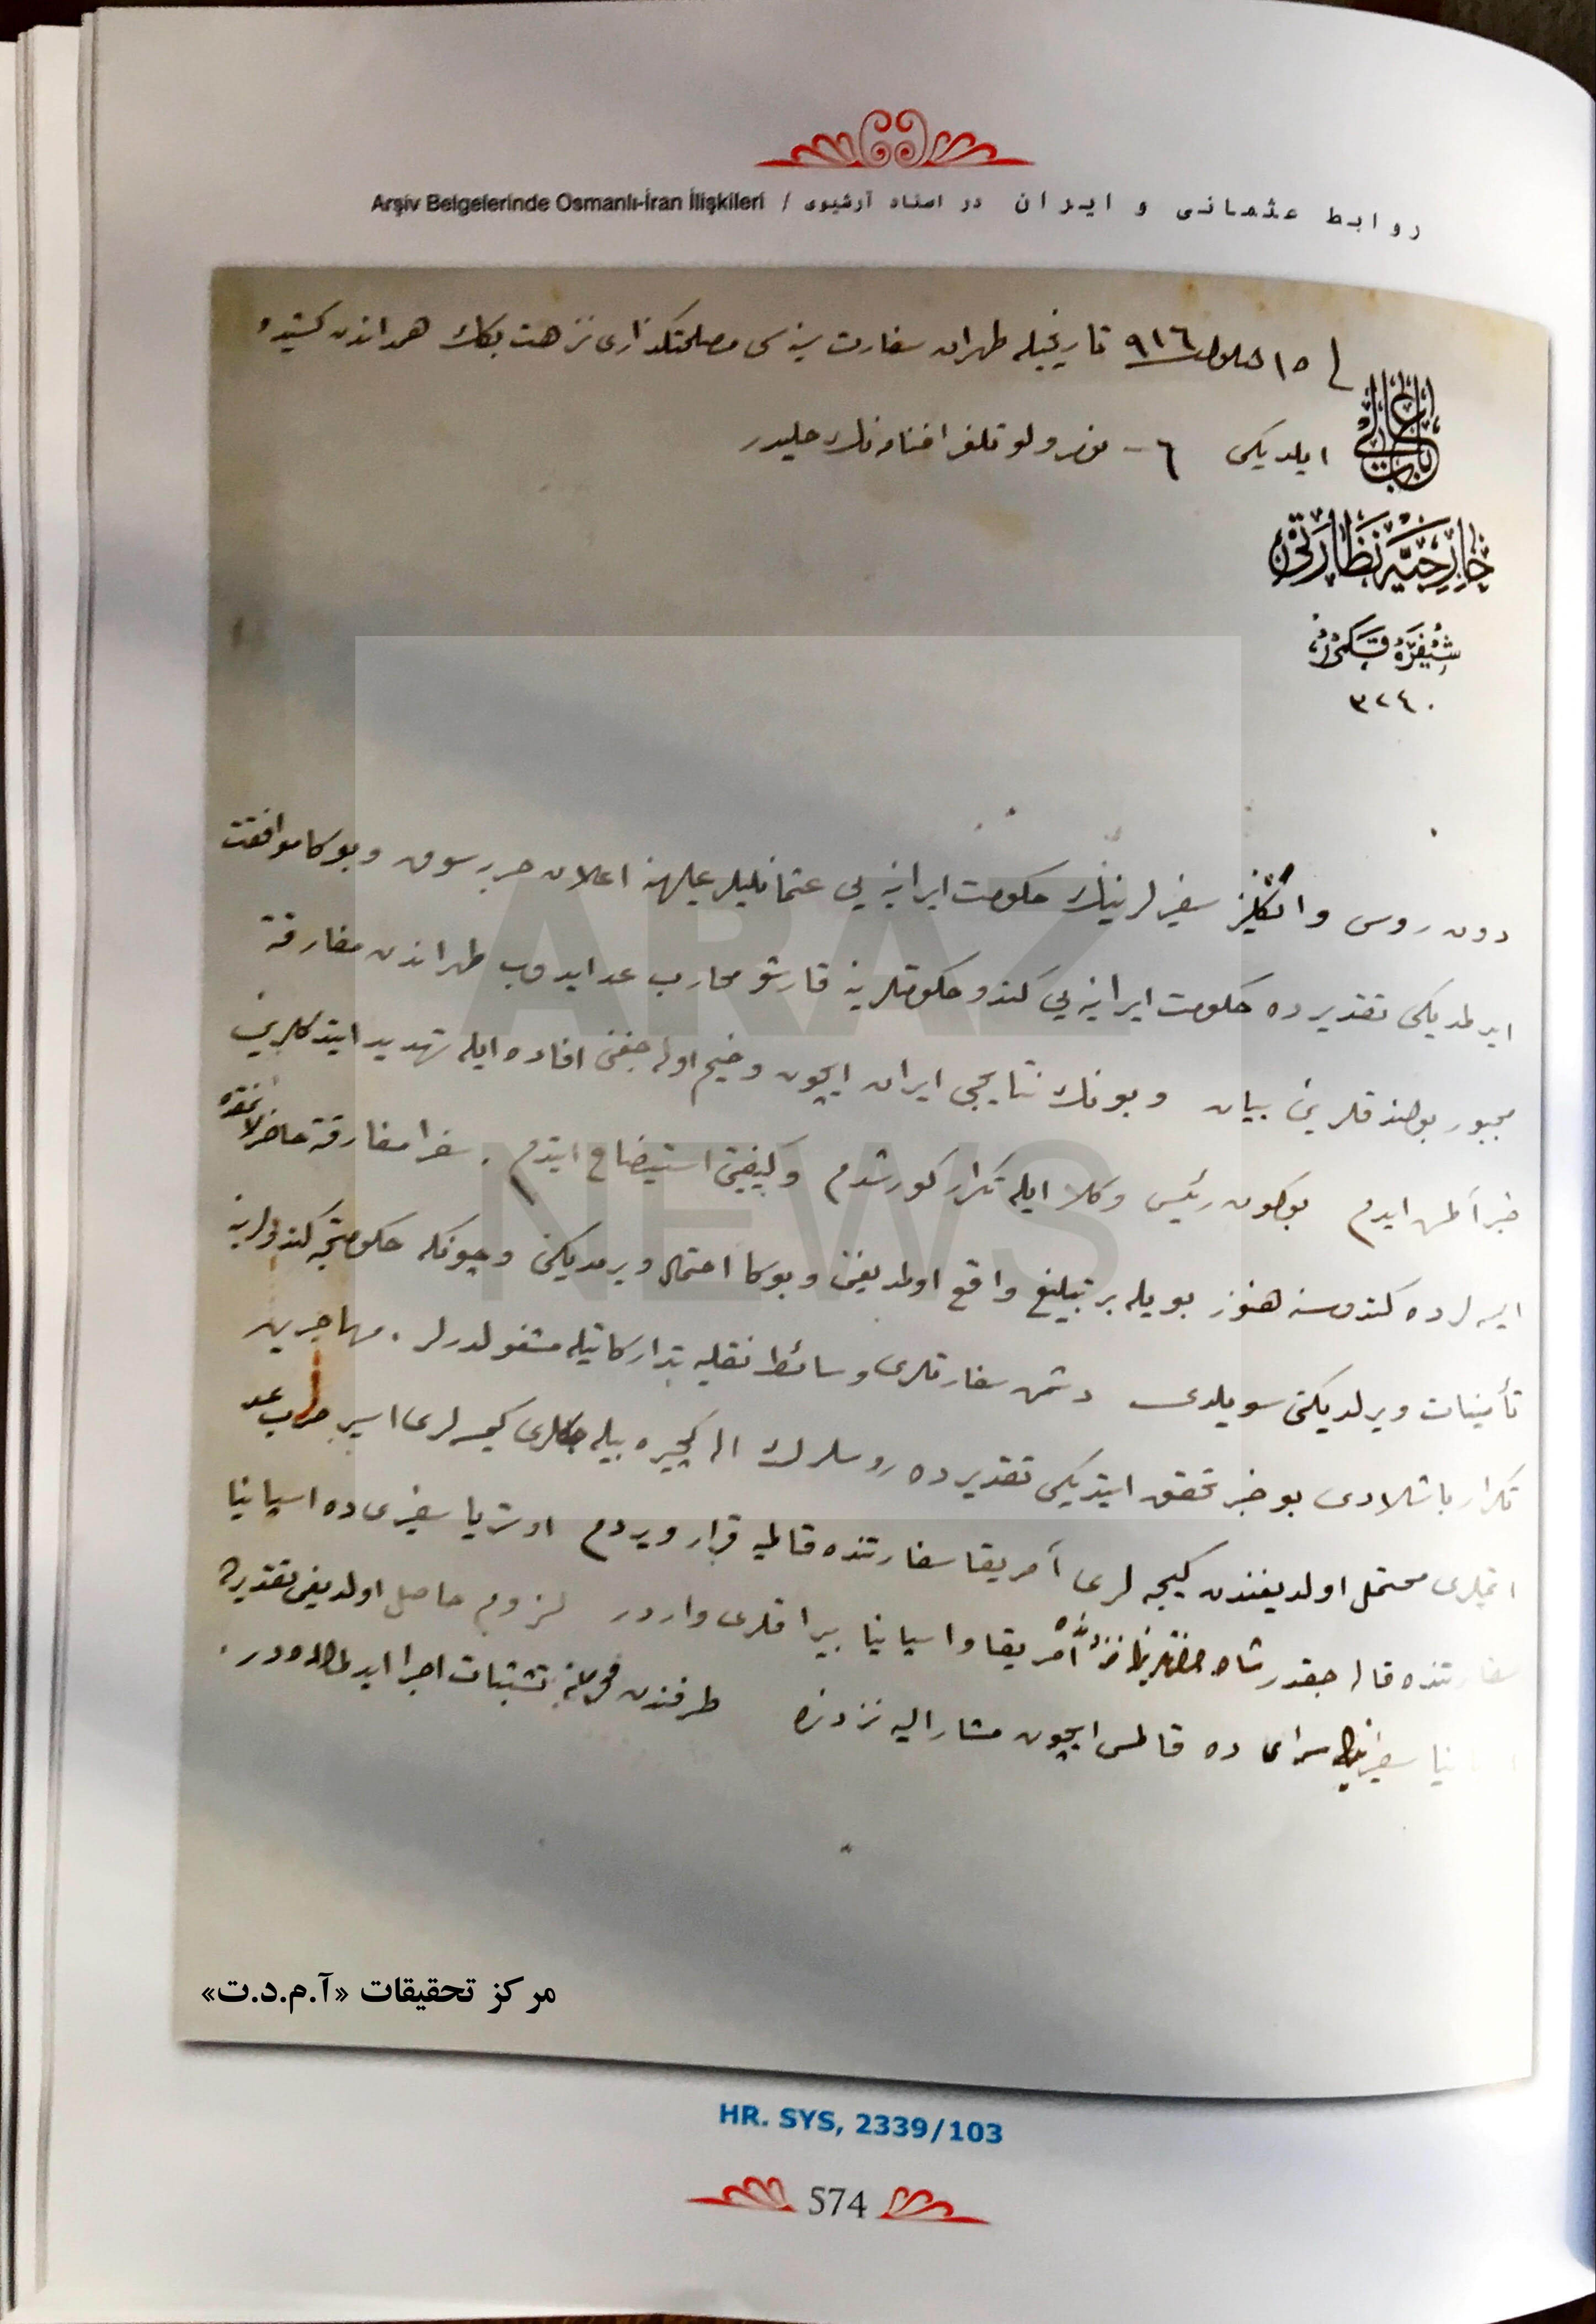 روابط عثمانی و ایران در اسناد آرشیوی / Arşiv Belgelerinde Osmanlı-İran İlişkileri
١٥ ٩١٦ تاریخیله طهران سفارت سنیه‌سی مصلحتكذاری نزهت بكك همداندن كشیده
باب عالی
ایلدیكی ٦- نومرولو تلغرافنامه‌نك حلیدر
خارجیه نظارتی
شیفره قلمی
٣٢٤٠
دون روس و انكلیز سفیرلرینك حكومت ایرانیه یی عثمانلیلر علیهنه اعلان حربه سوق و بوكا موافقت
ایدلمدیكی تقدیرده حكومت ایرانیه یی كندو حكومتلرینه قارشو محارب عد ایدوب طهراندن مفارقته
مجبور بولندقلرینی بیان و بونك نتایجی ایران ایچون وخیم اوله‌جغنی افاده ایله تهدید ایتدكلرینی
خبر آلمش ایدم بوكون رئیس وكلا ایله تكرار كورشدم و كیفیتی استیضاح ایتدم . سفرا مفارقته حاضرلانمقده
ایسه‌لرده كندوسنه هنوز بویله بر تبلیغ واقع اولمدیغنی و بوكا احتمال ویرمدیكنی و چونكه حكومتجه كندولرینه
تأمینات ویرلدیكنی سویلدی دشمن سفارتلری وسائط نقلیه تداركاتیله مشغولدرلر . مهاجرین
تكرار باشلادی بو خبر تحقق ایتدیكی تقدیرده روسلرك اله كچیره بیله‌جكلری كیمسه‌لری اسیر حرب عد
ایتملری محتمل اولدیغندن كیجه لری آمریقا سفارتنده قالمغه قرار ویردم اوستریا سفیری ده اسپانیا
سفارتنده قاله‌جقدر شاه آمریقا و اسپانیا بیراقلری واردر لزوم حاصل اولدیغی تقدیرده
سفیرینك سرای ده قالمسی ایچون مشار الیه نزدنده طرفندن تشبثات اجرا
ARAZ
NEWS
مرکز تحقیقات «آ.م.د.ت»
HR. SYS, 2339/103
574